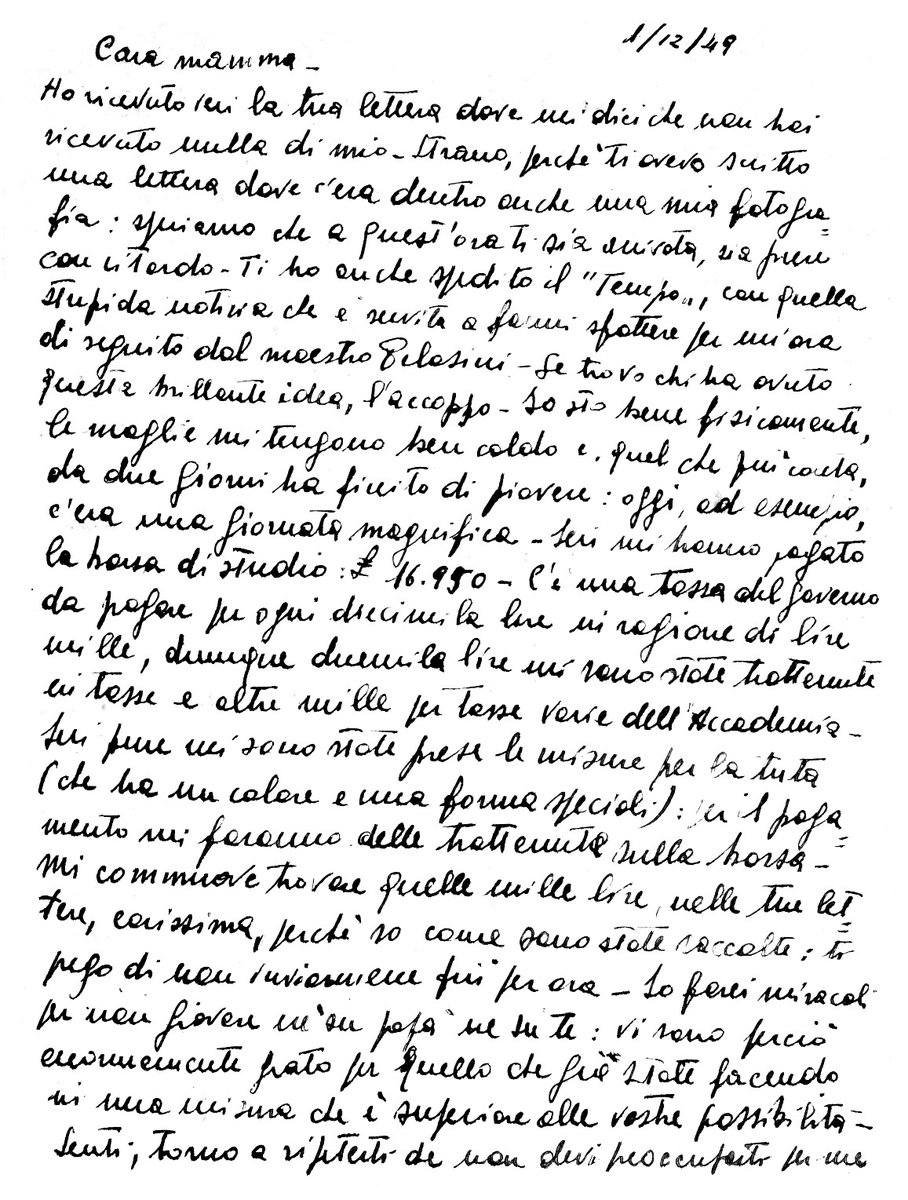 1/12/49
Cara mamma -
Ho ricevuto ieri la tua lettera dove mi dici che non hai
ricevuto nulla di mio - Strano, perchè ti avevo scritto
una lettera dove c'era dentro anche una mia fotogra=
fia : speriamo che a quest'ora ti sia arrivata, sia pure
con ritardo - Ti ho anche spedito il "Tempo", con quella
stupida notizia che è servita a farmi sfottere per mi ora
di seguito dal maestro - Se trovo chi ha avuto
questa brillante idea, l'accoppo - Io sto bene fisicamente,
le maglie mi tengono ben caldo e, quel che più conta,
da due giorni ha finito di piovere : oggi, ad esempio,
c'era una giornata magnifica - Ieri mi hanno pagato
la borsa di studio : £ 16.950 - C'è una tassa del governo
da pagare per ogni diecimila lire in ragione di lire
mille, dunque duemila lire mi sono state trattenute
in tasse e altre mille per tasse varie dell'Accademia -
Ieri pure mi sono state prese le misure per la tuta
(che ha un colore e una forma speciali) : per il paga=
mento mi faranno delle trattenute sulla borsa -
Mi commuove trovare quelle mille lire, nelle tue let=
tere, carissima, perchè so come sono state raccolte : ti
prego di non inviarmene più per ora - Io farei miracoli
per non gravare nè su papà nè su te : vi sono perciò
enormemente grato per quello che già state facendo
in una misura che è superiore alle vostre possibilità -
Senti, torno a ripeterti che non devi preoccuparti per me